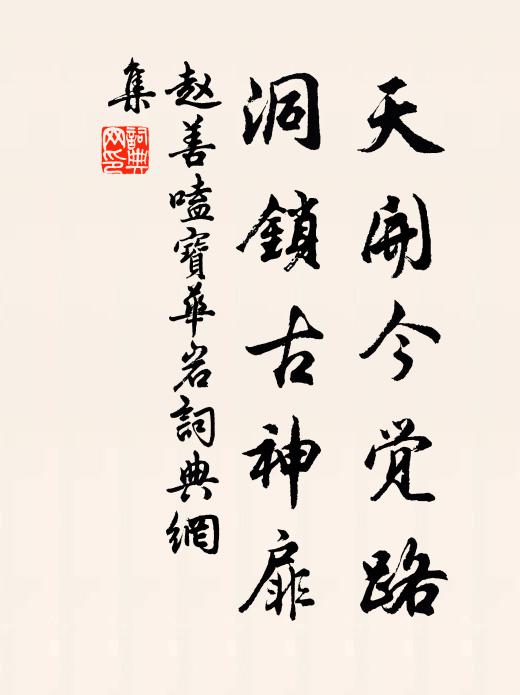 天開今覚路
洞鎖古神扉
赵善嗑寶華岩詞典網
集
詞典
网印